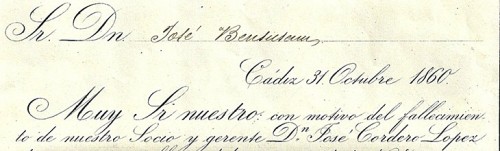 Sr. Dn. José Bensusan,
Cádiz 31. Octubre 1860.
Muy Sr nuestro: con motivo del fallecimien
to de nuestro Socio y gerente Dn José Cordero Lopez